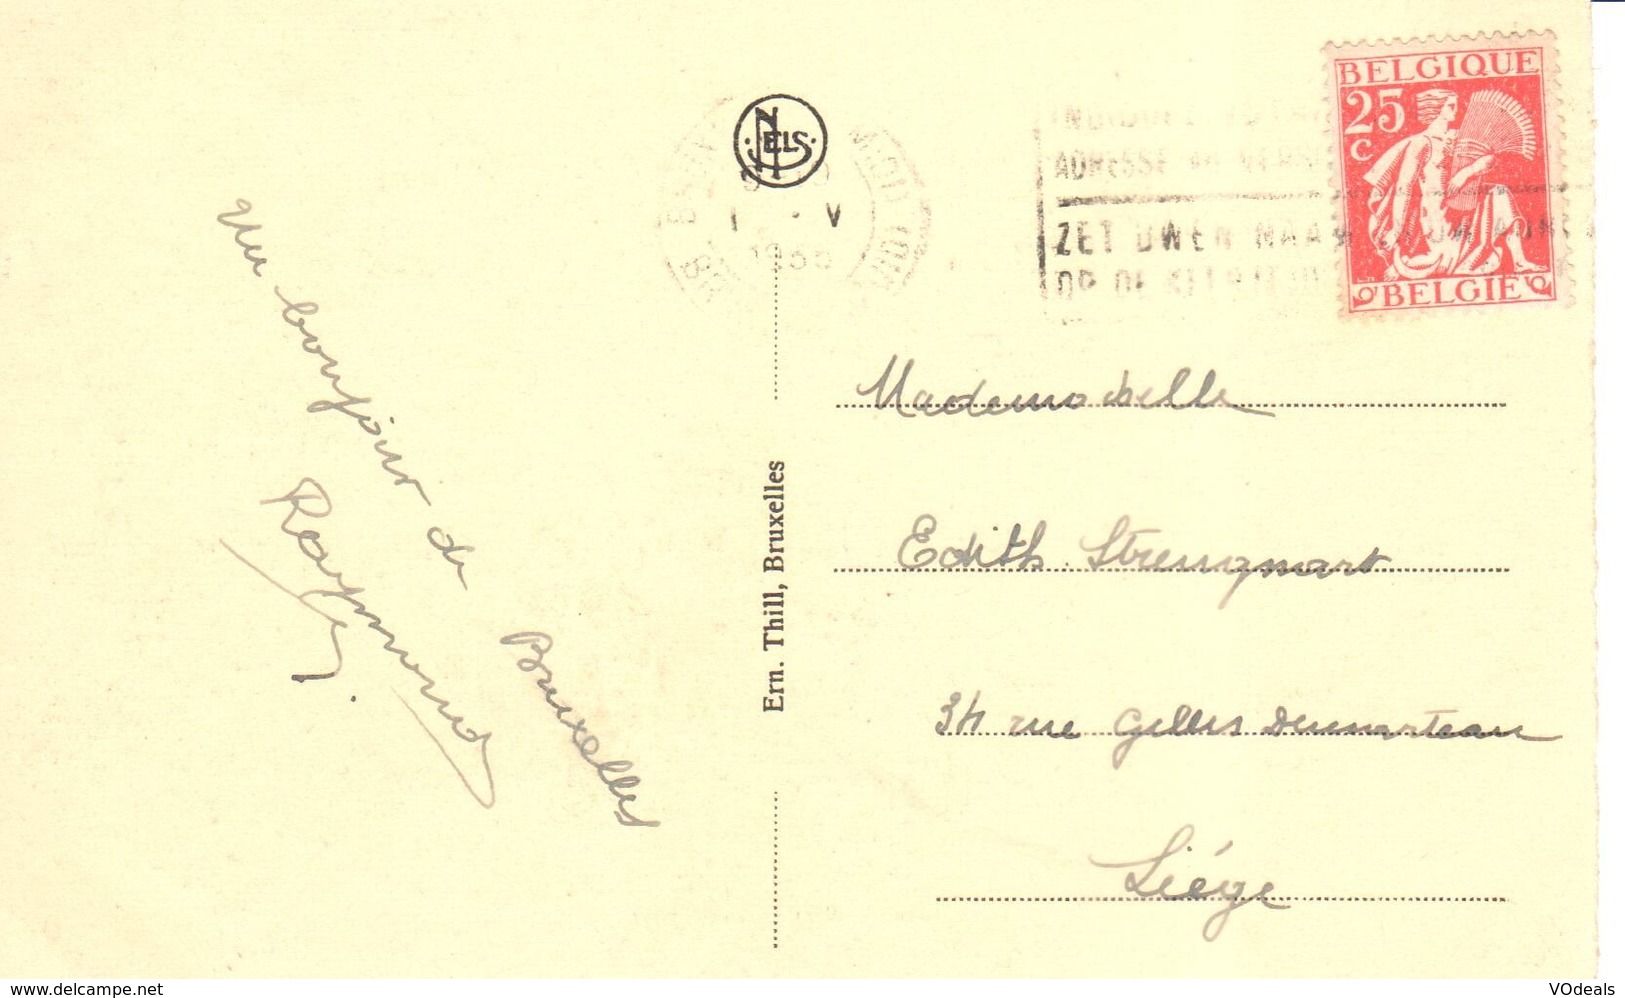 BELGIQUE
25
c
BELGIE
NELS
1 - V
ADRESSE AU
ZET UWEN NAAM EN UW
OP DE
Un bonjour de Bruxelles
Raymond
Ern. Thill, Bruxelles
Mademoiselle
Edith
34 rue Gilles Demarteau
Liége
www.delcampe.net
VOdeals